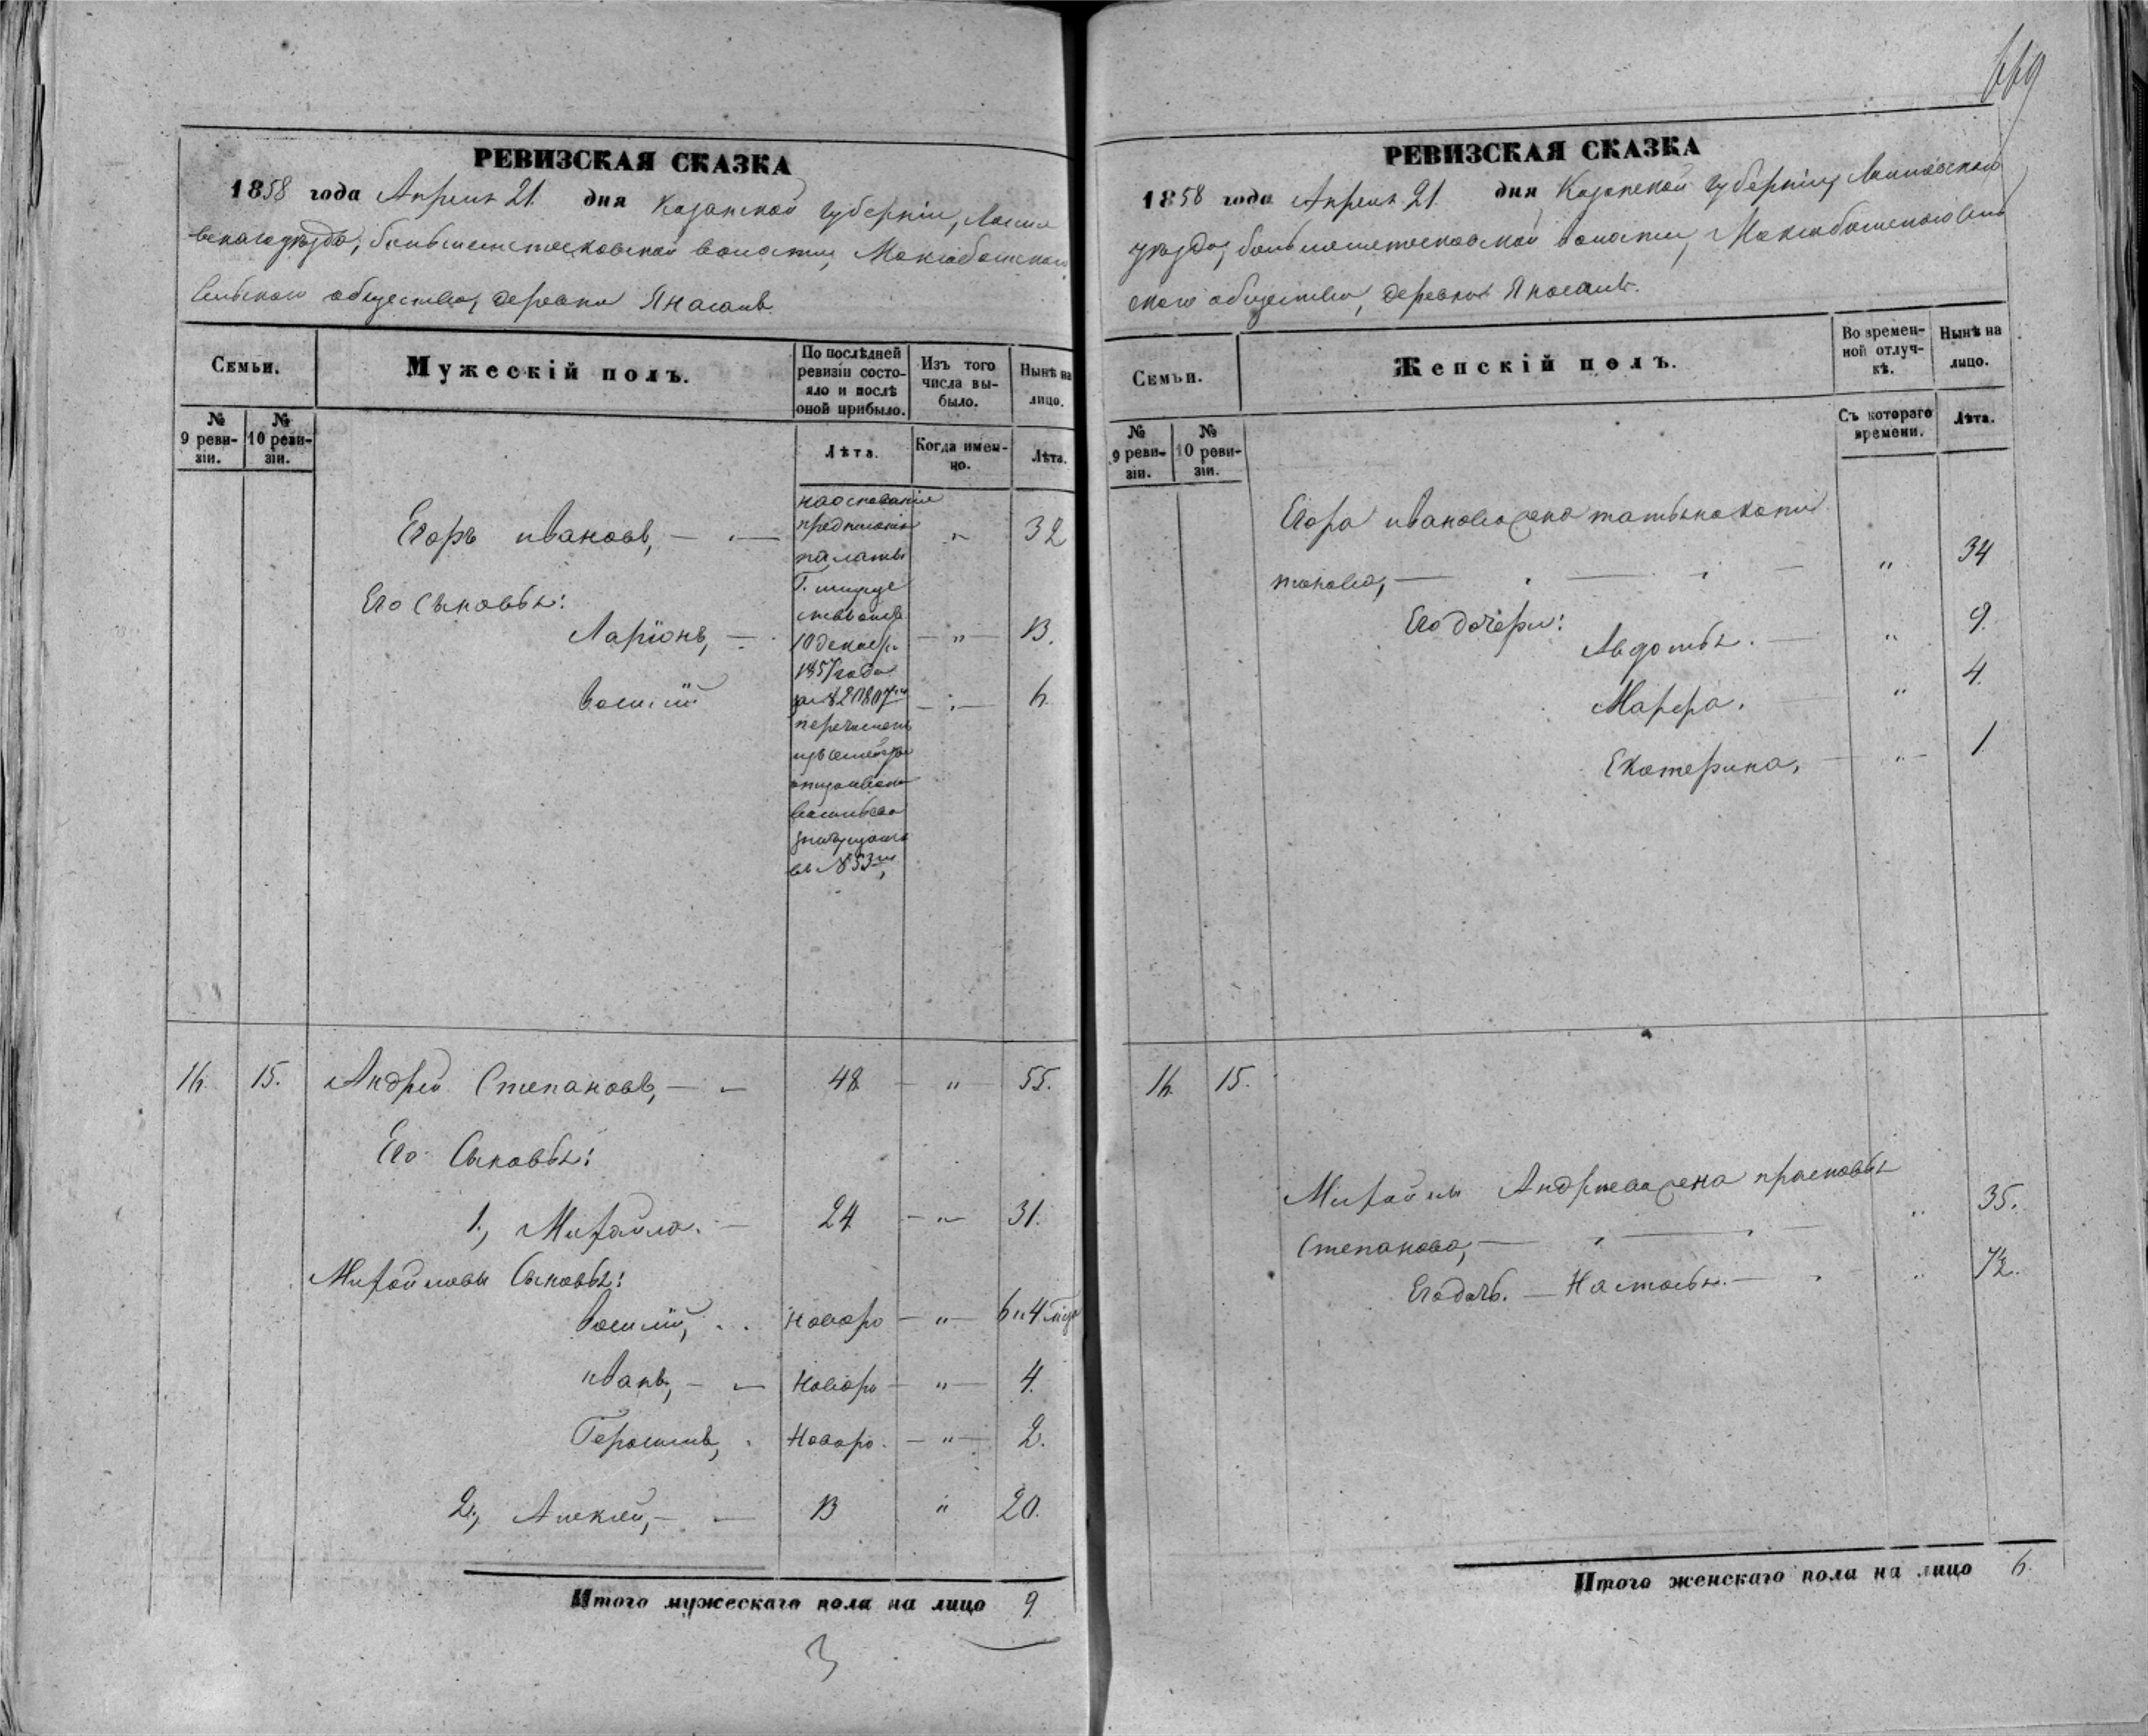 669
РЕВИЗСКАЯ СКАЗКА
1858 года Апреля 21 дня Казанской губернiи, Лаише
вскаго уѣзда, большеметесковской волости, Максабашскаго
сельскаго общества, деревни Янасалъ
Семьи.
Мужескiй полъ.
По послѣдней ревизiи состояло и послѣ оной прибыло.
Изъ того числа выбыло.
Нынѣ на лицо.
№ 9 ревизiи.
№ 10 ревизiи.
Лѣта.
Когда именно.
Лѣта.
Егоръ ивановъ, — „ 32
на основанiи
предписанiя
палаты
Г. имуще
ствъ отъ
10 декабр.
1857 года
за №
перечислен
изъ семейства
васильева
въ № 53
Его Сыновья:
Ларiонъ, — „ — 13.
василiй — „ — 6.
16. 15. Андрей Степановъ, — 48 — „ 55.
Его Сыновья:
1., Михайла. — 24 — „ — 31.
Михайловы Сыновья:
василiй, Новоро — „ — 6 и 4 мѣся
иванъ, — Новоро — „ — 4.
Герасимъ, Новоро. — „ — 2.
2., Алексей, — 13 „ 20.
Итого мужескаго пола на лицо 9.
3
РЕВИЗСКАЯ СКАЗКА
1858 года Апреля 21 дня Казанской губернiи, Лаишевскаго
уѣзда, большеметесковской волости, Максабашскаго сель
скаго общества, деревни Янасалъ.
Семьи.
Женскiй полъ.
Во временной отлучкѣ.
Нынѣ на лицо.
№ 9 ревизiи.
№ 10 ревизiи.
Съ котораго времени.
Лѣта.
Егора иванова жена татьяна хари
тонова, — „ 34
Его дочери:
Авдотья. — „ 9.
Марфа. — „ 4.
Екатерина. — „ — 1
16. 15.
Михайлы Андреева жена прасковья
Степанова, — „ 35.
Его дочь. — Настасья. — „ 1/2.
Итого женскаго пола на лицо 6.